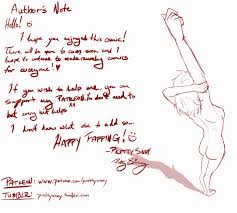 Author's Note
Hello! :)
I hope you enjoyed this comic!
There will be more to come soon and I
hope to continue to make raunchy comics
for everyone! ♥
If you wish to help me, you can
support my PATREON. You don't need to
but every bit helps
I don't know what else to add so...
HAPPY FAPPING! :)
PATREON: www.patreon.com/
TUMBLR: .tumblr.com